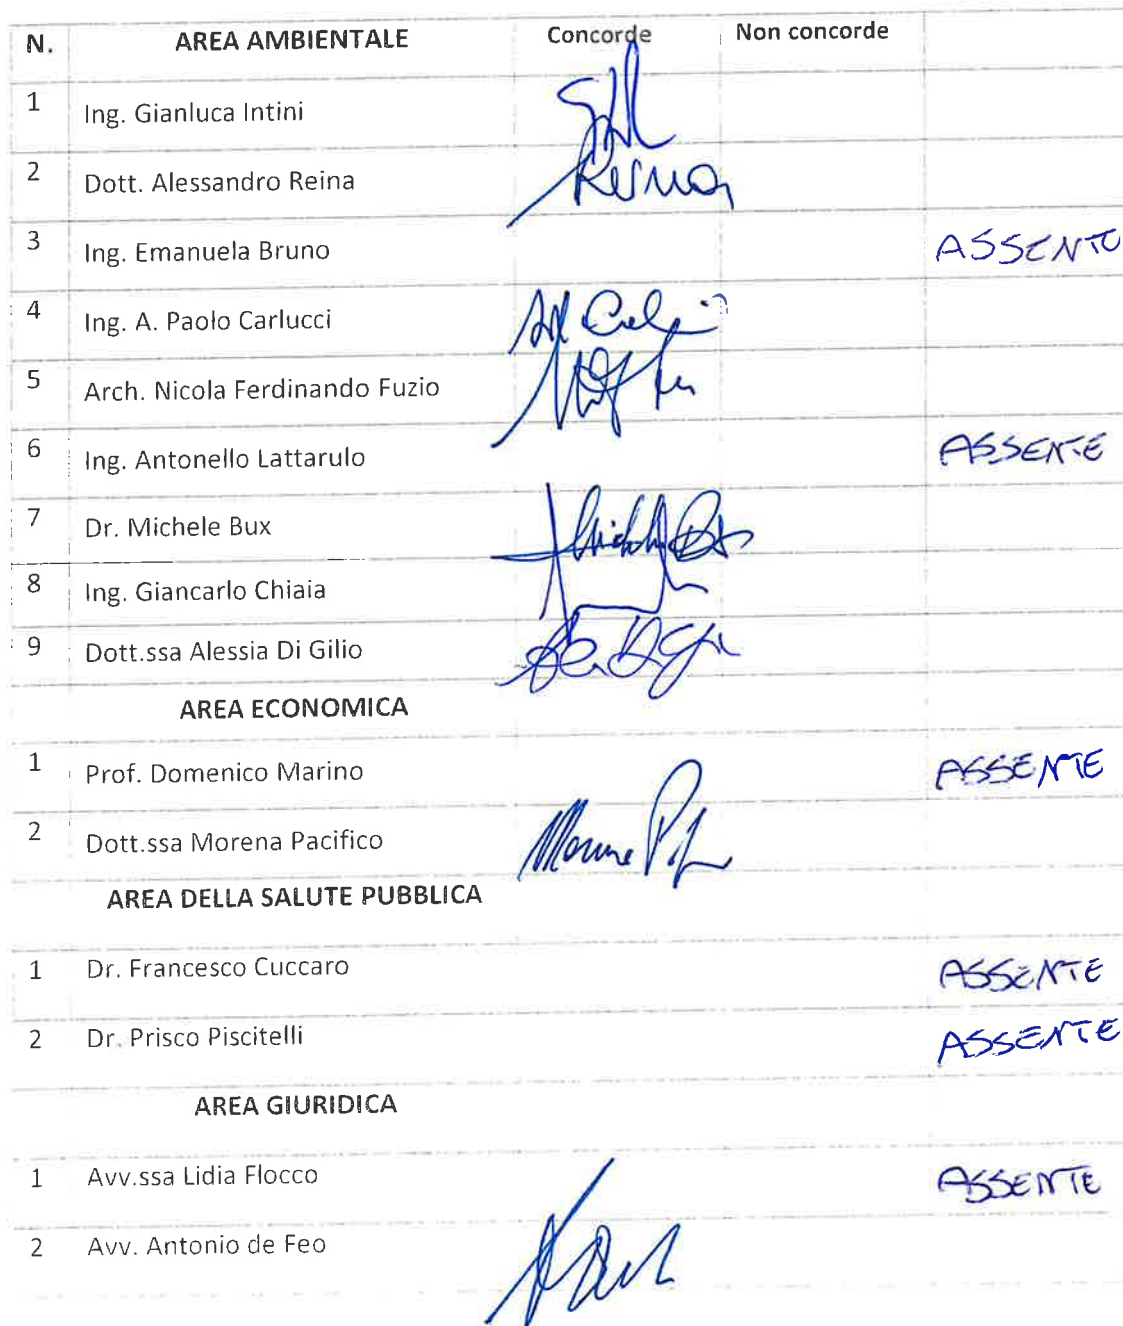 N. AREA AMBIENTALE Concorde Non concorde
1 Ing. Gianluca Intini
2 Dott. Alessandro Reina Reina
3 Ing. Emanuela Bruno ASSENTE
4 Ing. A. Paolo Carlucci
5 Arch. Nicola Ferdinando Fuzio
6 Ing. Antonello Lattarulo ASSENTE
7 Dr. Michele Bux
8 Ing. Giancarlo Chiaia
9 Dott.ssa Alessia Di Gilio
AREA ECONOMICA
1 Prof. Domenico Marino ASSENTE
2 Dott.ssa Morena Pacifico
AREA DELLA SALUTE PUBBLICA
1 Dr. Francesco Cuccaro ASSENTE
2 Dr. Prisco Piscitelli ASSENTE
AREA GIURIDICA
1 Avv.ssa Lidia Flocco ASSENTE
2 Avv. Antonio de Feo